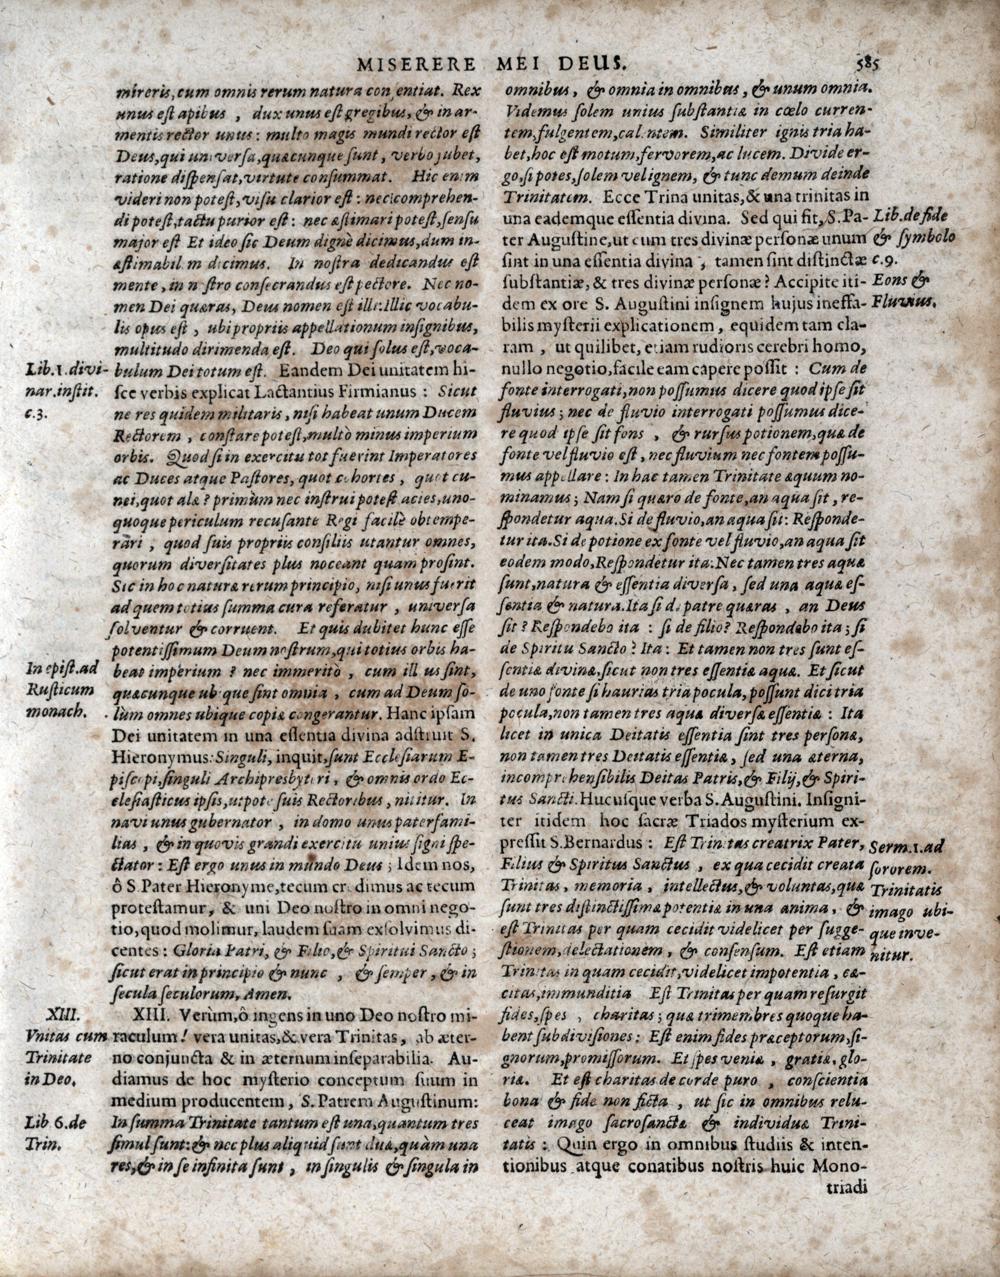 MISERERE MEI DEUS. 585
mireris, cum omnis rerum natura consentiat. Rex
unus est apibus, dux unus est gregibus, & in ar-
mentis rector unus: multo magis mundi rector est
Deus, qui universa, quæcunque sunt, verbo jubet,
ratione dispensat, virtute consummat. Hic enim
videri non potest, visu clarior est: nec comprehen-
di potest, tactu purior est: nec æstimari potest, sensu
major est Et ideo sic Deum dignè dicimus, dum in-
æstimabilem dicimus. In nostra dedicandus est
mente, in nostro consecrandus est pectore. Nec no-
men Dei quæras, Deus nomen est illi: Illic vocabu-
lis opus est, ubi propriis appellationum insignibus,
multitudo dirimenda est. Deo qui solus est, voca-
bulum Dei totum est. Eandem Dei unitatem hi-
sce verbis explicat Lactantius Firmianus: Sicut
ne res quidem militaris, nisi habeat unum Ducem
Rectorem, constare potest, multò minus imperium
orbis. Quod si in exercitu tot fuerint Imperatores
ac Duces atque Pastores, quot cohortes, quot cu-
nei, quot alæ? primùm nec instrui potest acies, uno-
quoque periculum recusante Regi facilè obtempe-
rari, quod suis propriis consiliis utantur omnes,
quorum diversitates plus noceant quam prosint.
Sic in hoc naturæ rerum principio, nisi unus fuerit
ad quem totius summa cura referatur, universa
solventur & corruent. Et quis dubitet hunc esse
potentissimum Deum nostrum, qui totius orbis ha-
beat imperium? nec immeritò, cum illius sint,
quæcunque ubique sint omnia, cum ad Deum so-
lùm omnes ubique copiæ congerantur. Hanc ipsam
Dei unitatem in una essentia divina adstruit S.
Hieronymus: Singuli, inquit, sunt Ecclesiarum E-
piscopi, singuli Archipresbyteri, & omnis ordo Ec-
clesiasticus ipsis, utpote suis Rectoribus, nititur. In
navi unus gubernator, in domo unus paterfami-
lias, & in quovis grandi exercitu unius signi spe-
ctator: Est ergo unus in mundo Deus; Idem nos,
ô S. Pater Hieronyme, tecum credimus ac tecum
protestamur, & uni Deo nostro in omni nego-
tio, quod molimur, laudem suam exsolvimus di-
centes: Gloria Patri, & Filio, & Spiritui Sancto;
sicut erat in principio & nunc, & semper, & in
secula seculorum, Amen.
XIII. Verùm, ô ingens in uno Deo nostro mi-
raculum! vera unitas, & vera Trinitas, ab æter-
no conjuncta & in æternum inseparabilia. Au-
diamus de hoc mysterio conceptum suum in
medium producentem, S. Patrem Augustinum:
In summa Trinitate tantum est una, quantum tres
simul sunt: & nec plus aliquid sunt duæ, quàm una
res, & in se infinita sunt, in singulis & singula in
Lib. 1. divi-
nar. instit.
c. 3.
In epist. ad
Rusticum
monach.
XIII.
Vnitas cum
Trinitate
in Deo.
Lib 6. de
Trin.
omnibus, & omnia in omnibus, & unum omnia.
Videmus solem unius substantiæ in cœlo curren-
tem, fulgentem, calentem. Similiter ignis tria ha-
bet, hoc est motum, fervorem, ac lucem. Divide er-
go, si potes, solem vel ignem, & tunc demum deinde
Trinitatem. Ecce Trina unitas, & una trinitas in
una eademque essentia divina. Sed qui fit, S. Pa-
ter Augustine, ut cum tres divinæ personæ unum
sint in una essentia divina, tamen sint distinctæ
substantiæ, & tres divinæ personæ? Accipite iti-
dem ex ore S. Augustini insignem hujus ineffa-
bilis mysterii explicationem, equidem tam cla-
ram, ut quilibet, etiam rudioris cerebri homo,
nullo negotio, facile eam capere possit: Cum de
fonte interrogati, non possumus dicere quod ipse sit
fluvius; nec de fluvio interrogati possumus dice-
re quod ipse sit fons, & rursus potionem, quæ de
fonte vel fluvio est, nec fluvium nec fontem possu-
mus appellare: In hac tamen Trinitate æquum no-
minamus; Nam si quæro de fonte, an aqua sit, re-
spondetur aqua. Si de fluvio, an aqua sit: Responde-
tur ita. Si de potione ex fonte vel fluvio, an aqua sit
eodem modo, Respondetur ita: Nec tamen tres aquæ
sunt, natura & essentia diversa, sed una aquæ es-
sentia & natura. Ita si de patre quæras, an Deus
sit? Respondebo ita: si de filio? Respondebo ita; si
de Spiritu Sancto? Ita: Et tamen non tres sunt es-
sentiæ divinæ, sicut non tres essentiæ aquæ. Et sicut
de uno fonte si haurias tria pocula, possunt dici tria
pocula, non tamen tres aquæ diversæ essentiæ: Ita
licet in unica Deitatis essentia sint tres personæ,
non tamen tres Deitatis essentiæ, sed una æterna,
incomprehensibilis Deitas Patris, & Filij, & Spiri-
tus Sancti. Hucusque verba S. Augustini. Insigni-
ter itidem hoc sacræ Triados mysterium ex-
pressit S. Bernardus: Est Trinitas creatrix Pater,
Filius & Spiritus Sanctus, ex qua cecidit creata
Trinitas, memoria, intellectus, & voluntas, quæ
sunt tres distinctissimæ potentiæ in una anima, &
est Trinitas per quam cecidit videlicet per sugge-
stionem, delectationem, & consensum. Est etiam
Trinitas in quam cecidit, videlicet impotentia, cæ-
citas, immunditia Est Trinitas per quam resurgit
fides, spes, charitas; quæ trimembres quoque ha-
bent subdivisiones: Est enim fides præceptorum, si-
gnorum, promissorum. Et spes veniæ, gratiæ, glo-
riæ. Et est charitas de corde puro, conscientia
bona & fide non ficta, ut sic in omnibus relu-
ceat imago sacrosanctæ & individuæ Trini-
tatis: Quin ergo in omnibus studiis & inten-
tionibus atque conatibus nostris huic Mono-
triadi
Lib. de fide
& symbolo
c. 9.
Eons &
Fluvius.
Serm. 1. ad
sororem.
Trinitatis
imago ubi-
que inve-
nitur.